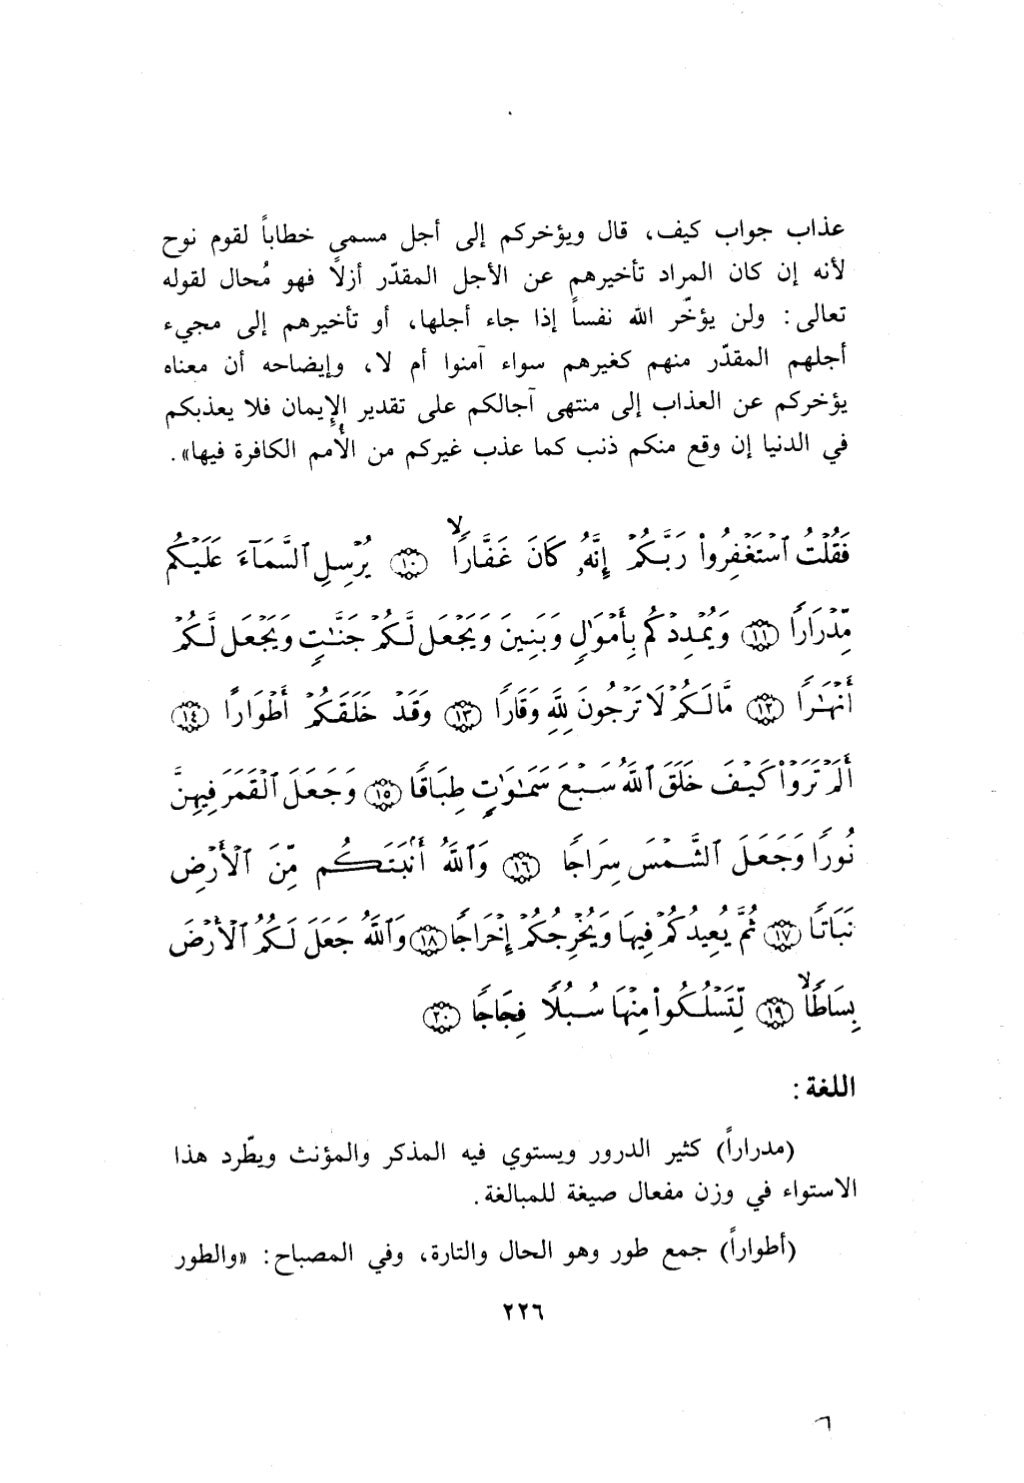 عذاب جواب كيف، قال ويؤخركم إلى أجل مسمى خطاباً لقوم نوح
لأنه إن كان المراد تأخيرهم عن الأجل المقدّر أزلاً فهو مُحال لقوله
تعالى: ولن يؤخّر الله نفساً إذا جاء أجلها، أو تأخيرهم إلى مجيء
أجلهم المقدّر منهم كغيرهم سواء آمنوا أم لا، وإيضاحه أن معناه
يؤخركم عن العذاب إلى منتهى آجالكم على تقدير الإِيمان فلا يعذبكم
في الدنيا إن وقع منكم ذنب كما عذب غيركم من الأُمم الكافرة فيها».
فَقُلْتُ ٱسْتَغْفِرُوا۟ رَبَّكُمْ إِنَّهُۥ كَانَ غَفَّارًا ۙ ١٠ يُرْسِلِ ٱلسَّمَآءَ عَلَيْكُم
مِّدْرَارًا ١١ وَيُمْدِدْكُم بِأَمْوَٰلٍ وَبَنِينَ وَيَجْعَل لَّكُمْ جَنَّـٰتٍ وَيَجْعَل لَّكُمْ
أَنْهَـٰرًا ١٢ مَّا لَكُمْ لَا تَرْجُونَ لِلَّهِ وَقَارًا ١٣ وَقَدْ خَلَقَكُمْ أَطْوَارًا ١٤
أَلَمْ تَرَوْا۟ كَيْفَ خَلَقَ ٱللَّهُ سَبْعَ سَمَـٰوَٰتٍ طِبَاقًا ١٥ وَجَعَلَ ٱلْقَمَرَ فِيهِنَّ
نُورًا وَجَعَلَ ٱلشَّمْسَ سِرَاجًا ١٦ وَٱللَّهُ أَنۢبَتَكُم مِّنَ ٱلْأَرْضِ
نَبَاتًا ١٧ ثُمَّ يُعِيدُكُمْ فِيهَا وَيُخْرِجُكُمْ إِخْرَاجًا ١٨ وَٱللَّهُ جَعَلَ لَكُمُ ٱلْأَرْضَ
بِسَاطًا ۙ ١٩ لِّتَسْلُكُوا۟ مِنْهَا سُبُلًا فِجَاجًا ٢٠
اللغة:
(مدراراً) كثير الدرور ويستوي فيه المذكر والمؤنث ويطّرد هذا
الاستواء في وزن مفعال صيغة للمبالغة.
(أطواراً) جمع طور وهو الحال والتارة، وفي المصباح: «والطور
٢٢٦
٦